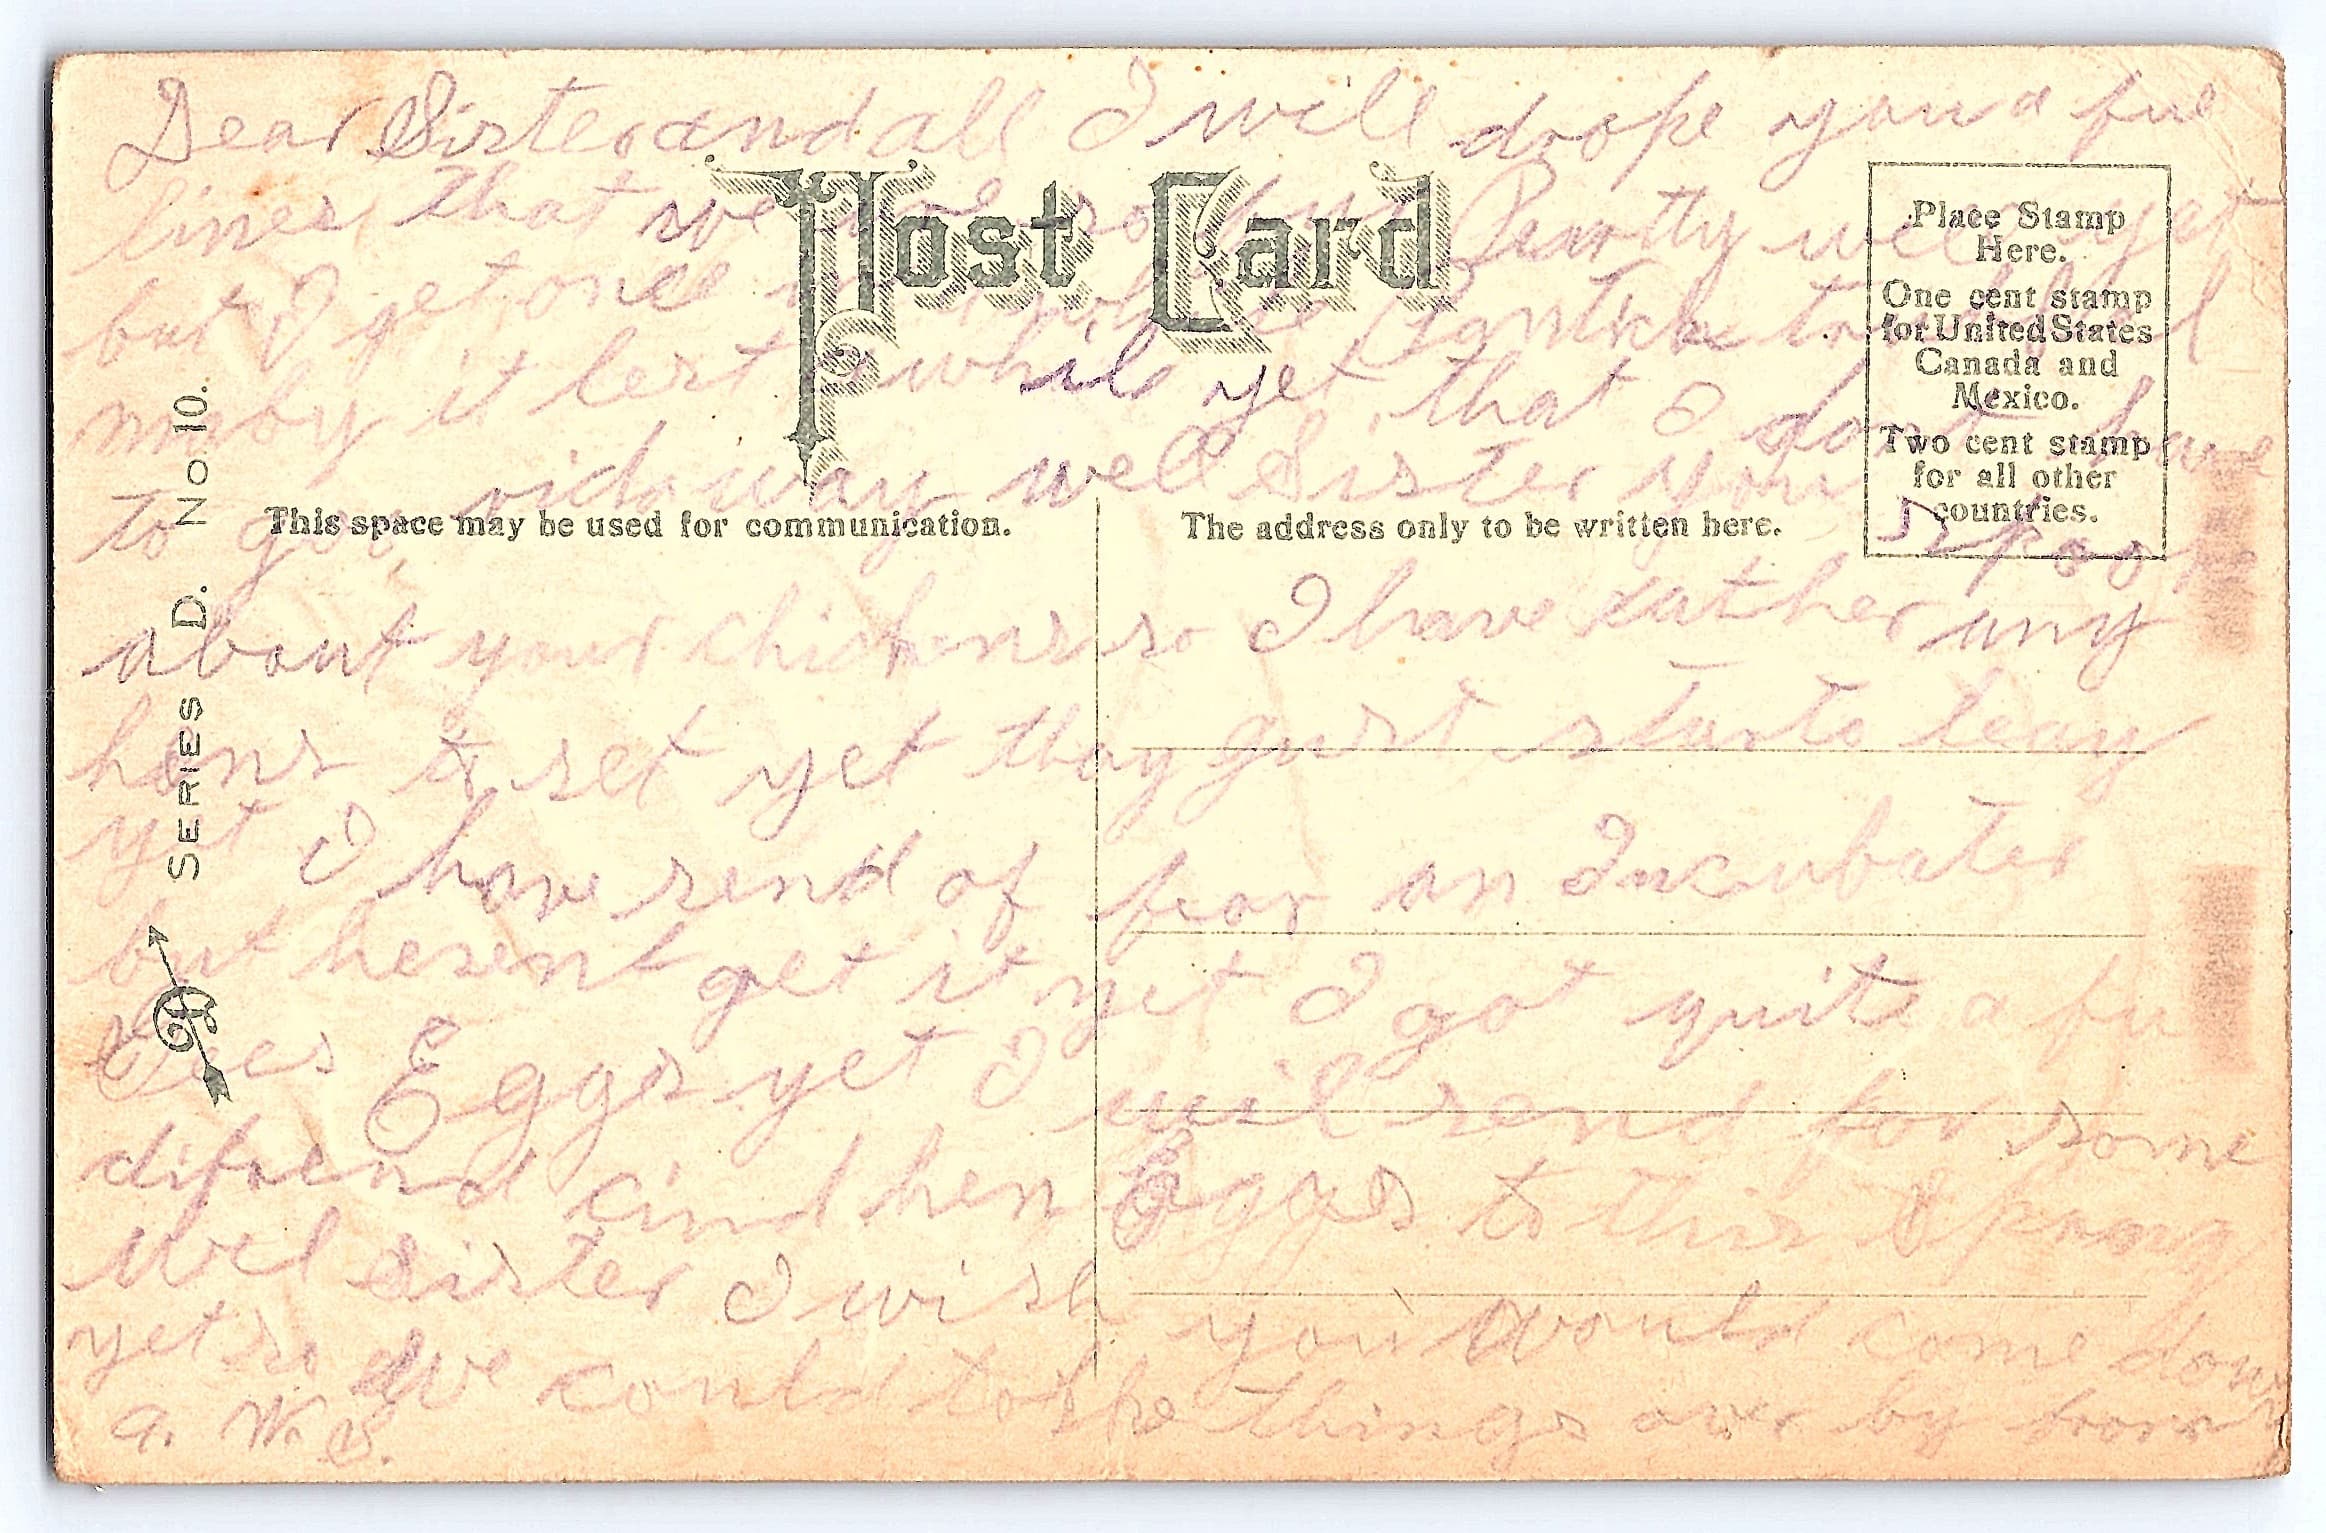 Dear Sister and all I will drope you a fue
lines that we are so Purtty well yet
but I get one to
maby it lest a while yet that I dont have
to go widaway well Sister you Spoak
about your chickens so I have rather any
hens to set yet thay gust starts leay
yet I have send of foar an Incubater
but hesent get it yet I got quite a fu
Gees Eggs yet I will send for some
difrend cind hen Eggs to this Spring
Wel Sister I wish you Would come down
yet so We could tolke things over by from
a. W. S.
Post Card
Place Stamp
Here.
One cent stamp
for United States
Canada and
Mexico.
Two cent stamp
for all other
countries.
This space may be used for communication.
The address only to be written here.
SERIES D. No. 10.